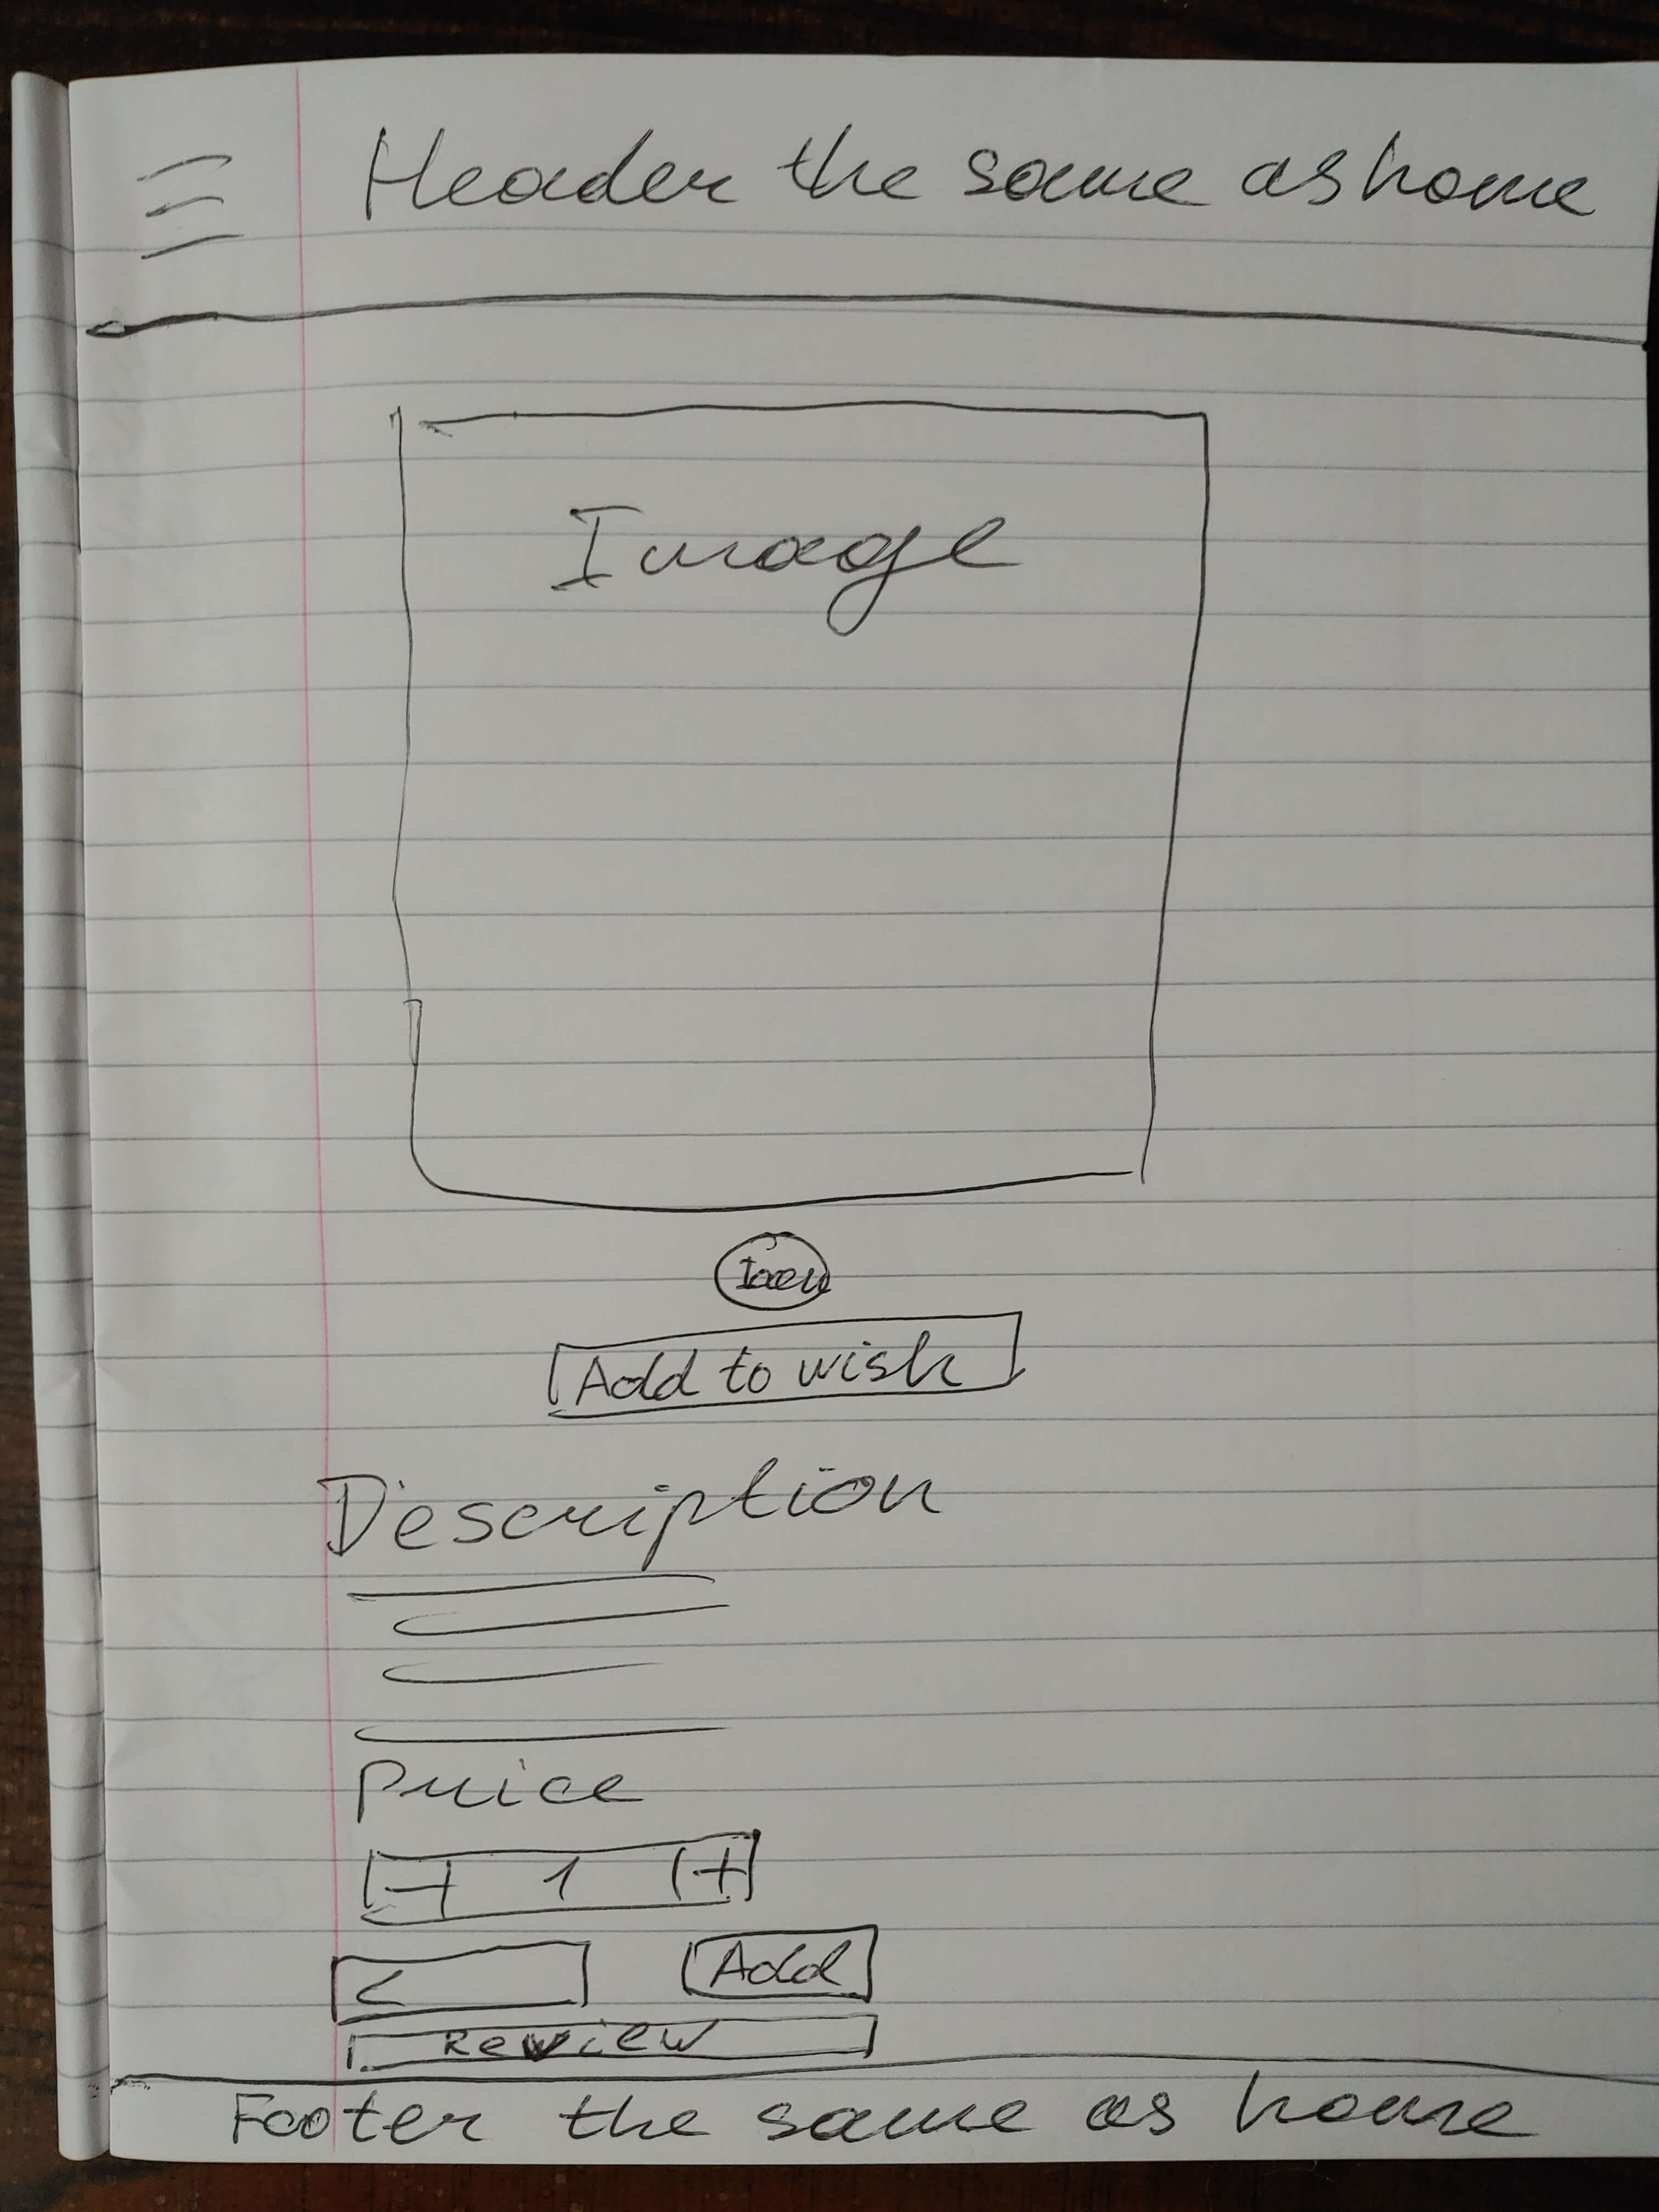 Header the same as home
Image
Add to wish
Description
Price
- 1 +
<
Add
Review
Footer the same as home